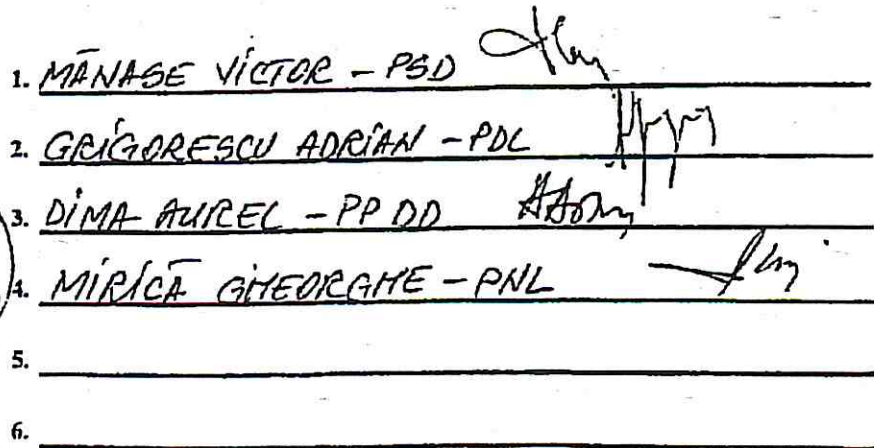 1. MĂNASE VICTOR - PSD
2. GRIGORESCU ADRIAN - PDL
3. DIMA AUREL - PP DD
4. MIRICĂ GHEORGHE - PNL
5.
6.